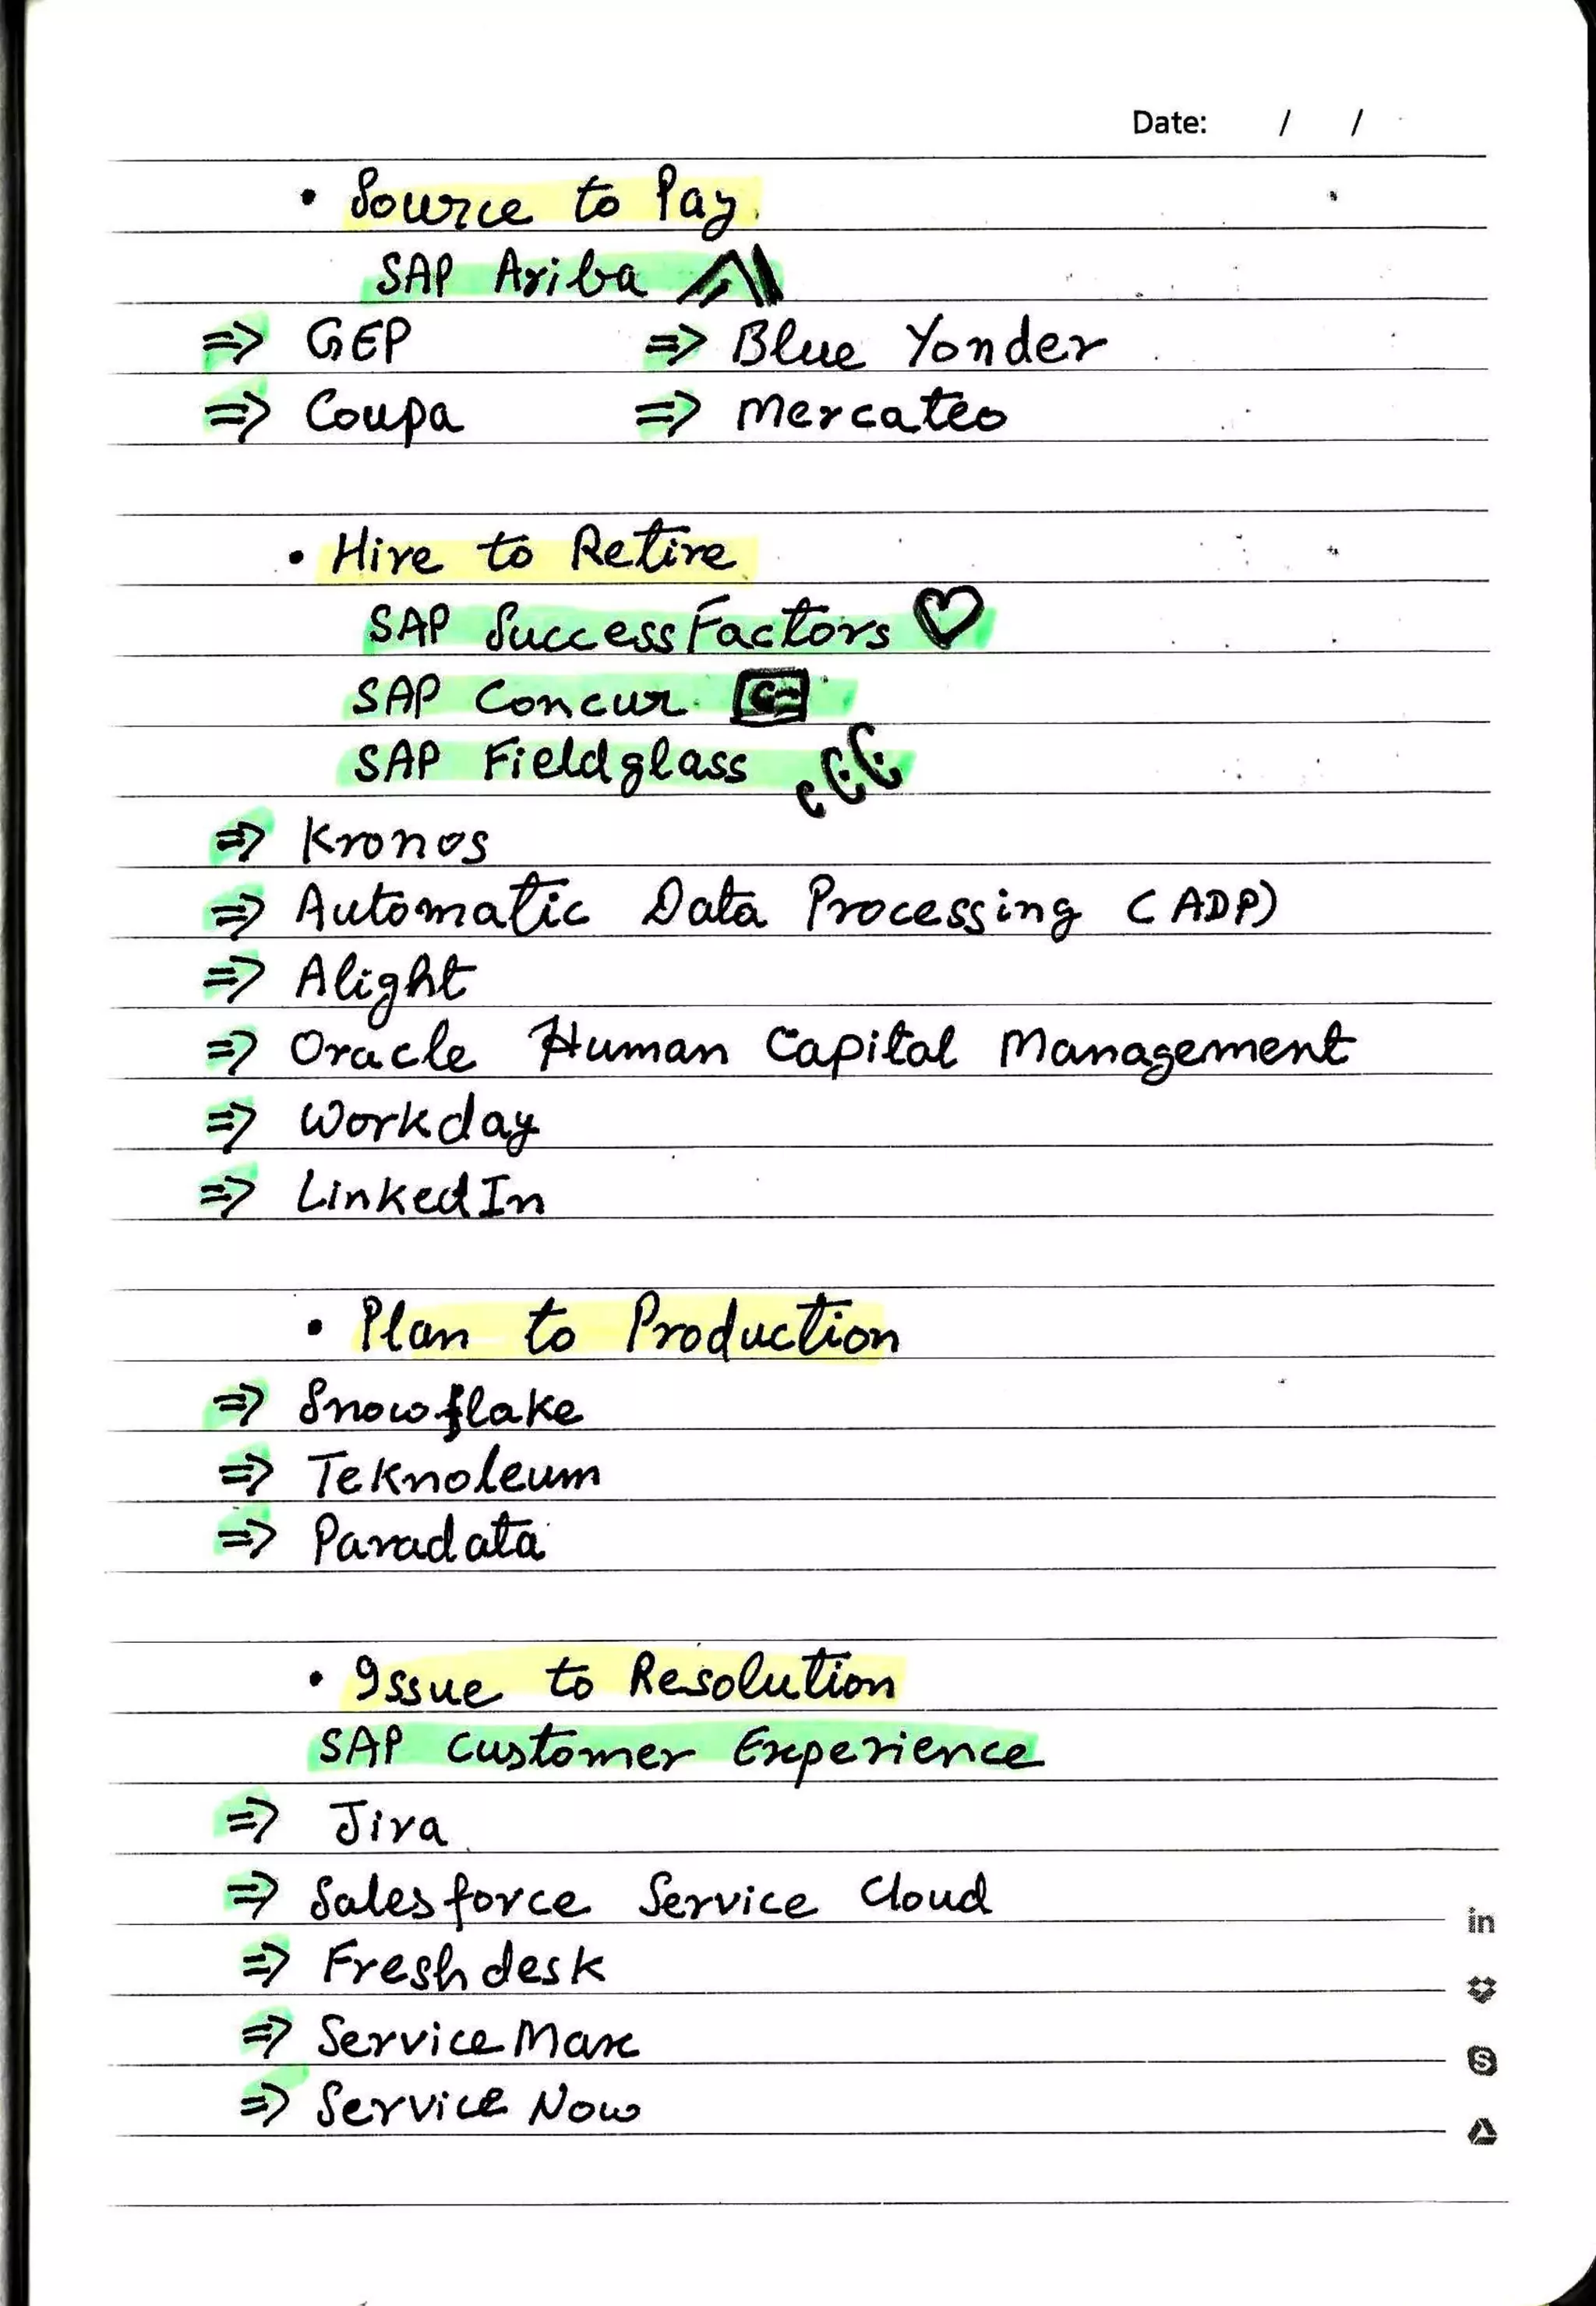 Date: / /
• Source to Pay.
SAP Ariba
=> GEP => Blue Yonder
=> Coupa => Mercateo
• Hire to Retire
SAP SuccessFactors
SAP Concur
SAP Fieldglass
=> Kronos
=> Automatic Data Processing (ADP)
=> Alight
=> Oracle Human Capital Management
=> Workday
=> LinkedIn
• Plan to Production
=> Snowflake
=> Teknoleum
=> Paradata
• Issue to Resolution
SAP Customer Experience
=> Jira
=> Salesforce Service Cloud
=> Freshdesk
=> ServiceMax
=> Service Now
in